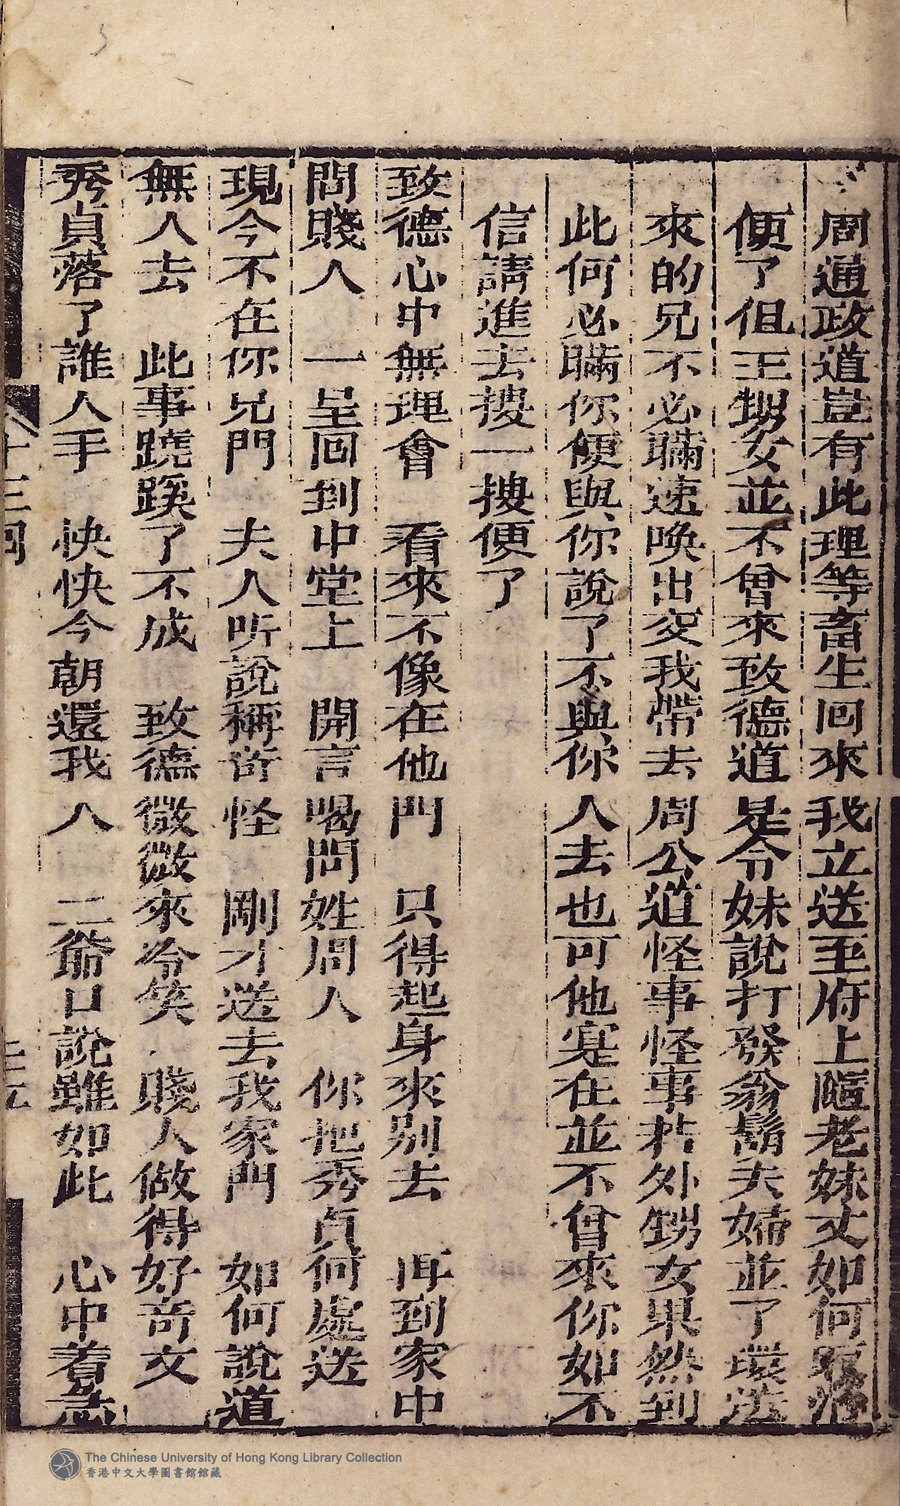 周通政道豈有此理等畜生回來我立送至府上隨老妹丈如何
便了但王甥女並不曾來致德道是令妹說打發翁鬍夫婦並了環
來的兄不必瞞速喚出交我帶去周公道怪事怪事若外甥女果然到
此何必瞞你便與你說了不與你人去也可他寔在並不曾來你如不
信請進去搜一搜便了
致德心中無理會 看來不像在他門 只得起身來别去 再到家中
問賤人 一呈回到中堂上 開言喝問姓周人 你把秀貞何處送
現今不在你兄門 夫人听說稱竒怪 剛才送去我家門 如何說道
無人去 此事蹺蹊了不成 致德微微來冷笑 賤人做得好竒文
秀貞落了誰人手 快快今朝還我人 二爺口說雖如此 心中着急
十三回
The Chinese University of Hong Kong Library Collection
香港中文大學圖書館館藏